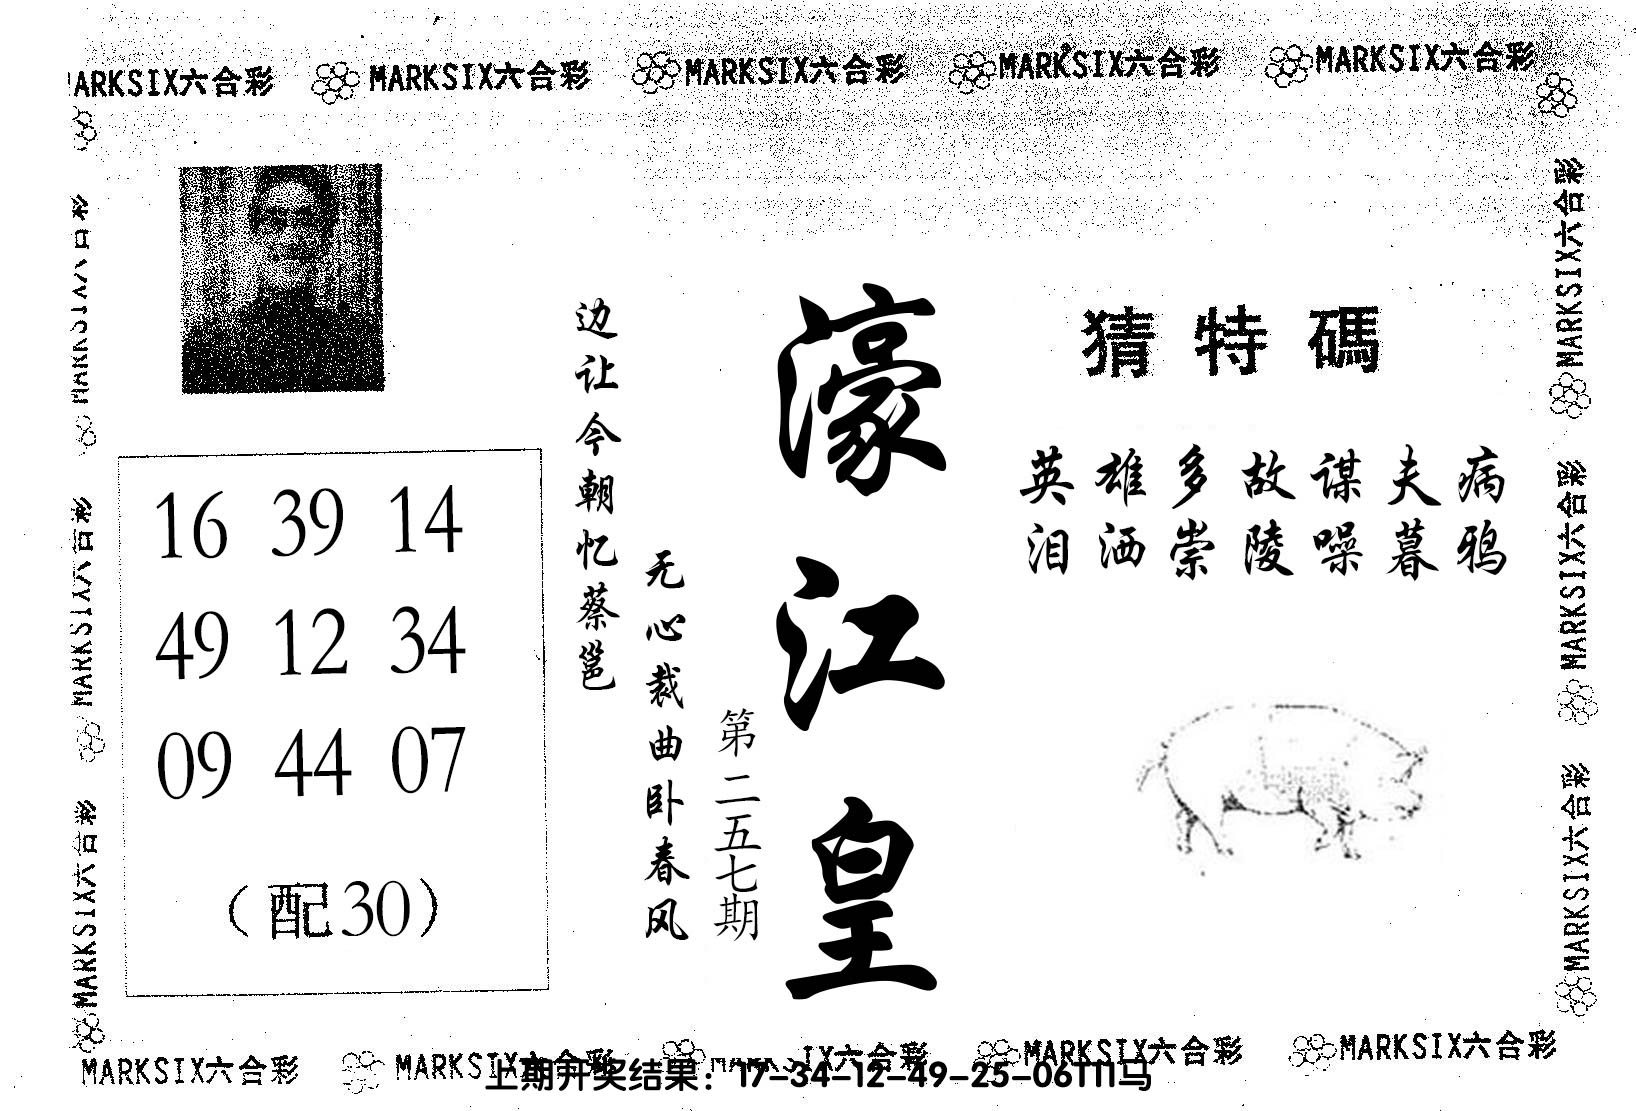 MARKSIX六合彩 MARKSIX六合彩 MARKSIX六合彩 MARKSIX六合彩 MARKSIX六合彩
MARKSIX六合彩
MARKSIX六合彩
MARKSIX六合彩
MARKSIX六合彩
MARKSIX六合彩
MARKSIX六合彩
猜特碼
英雄多故谋夫病
泪洒崇陵噪暮鸦
濠江皇
第二五七期
边让今朝忆蔡邕
无心裁曲卧春风
16 39 14
49 12 34
09 44 07
（配30）
MARKSIX六合彩 MARKSIX六合彩 MARKSIX六合彩 MARKSIX六合彩 MARKSIX六合彩
上期开奖结果：17-34-12-49-25-06T11马